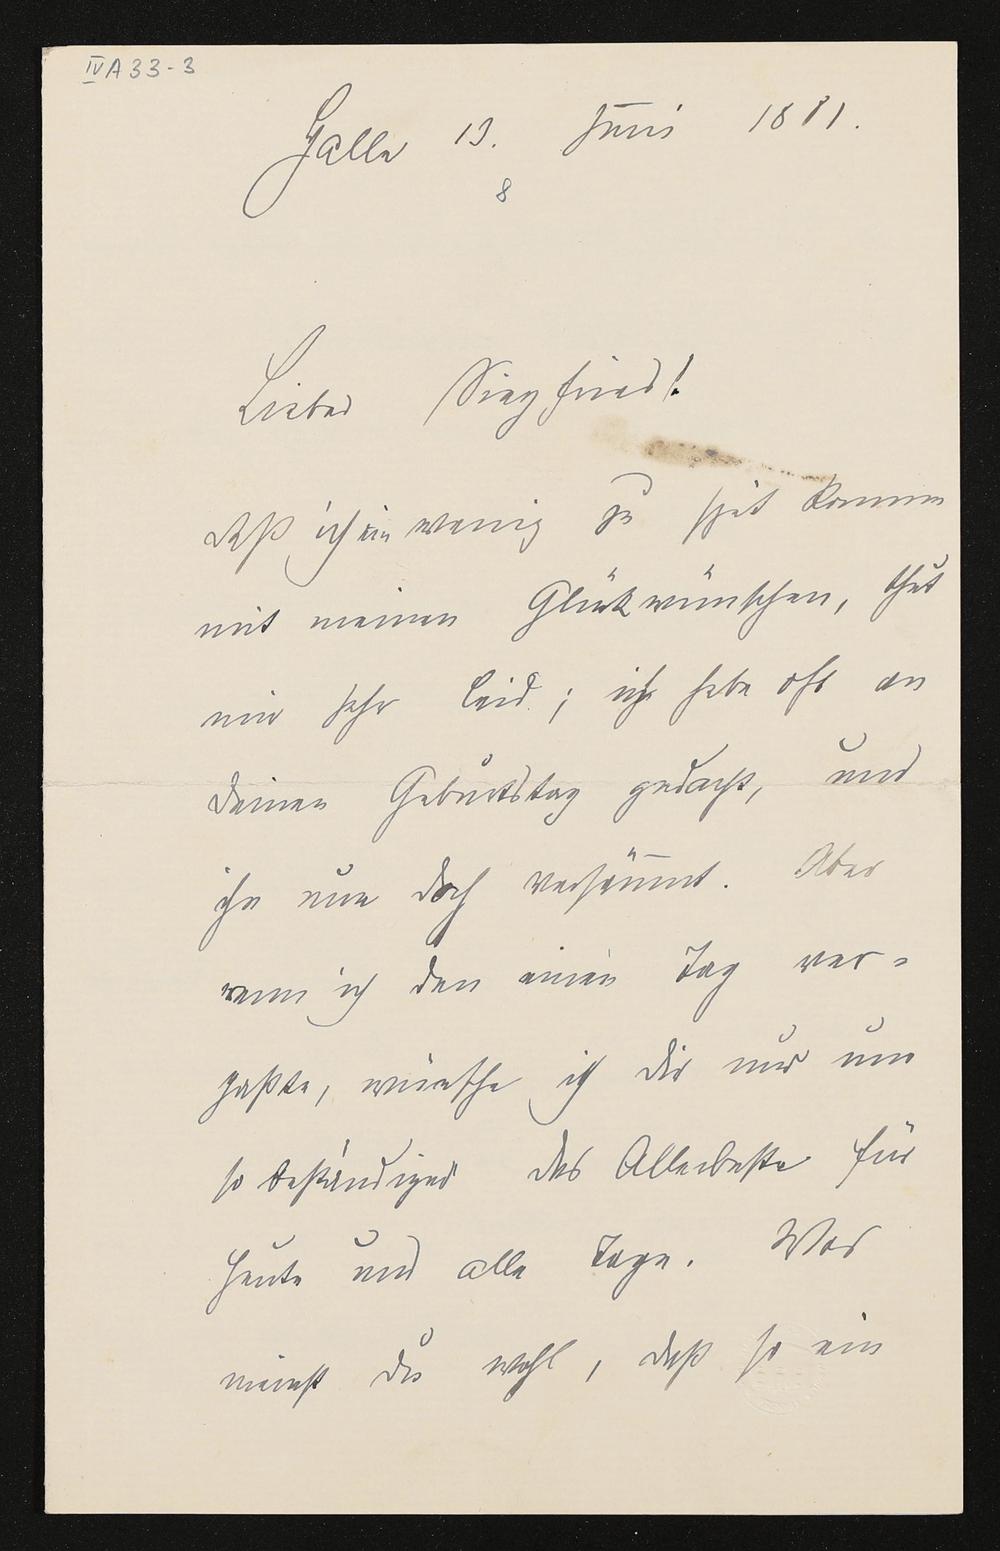 IV A 33-3
Halle 13. Juni 1881.
8
Lieber Siegfried!
Daß ich ein wenig zu spät komme
mit meinen Glückwünschen, thut
mir sehr leid; ich habe oft an
deinen Geburtstag gedacht, und
ihn nun doch versäumt. Aber
wenn ich den einen Tag ver-
paßte, wünsche ich dir nur um
so beständiger das Allerbeste für
heute und alle Tage. Was
meinst du wohl, daß so ein